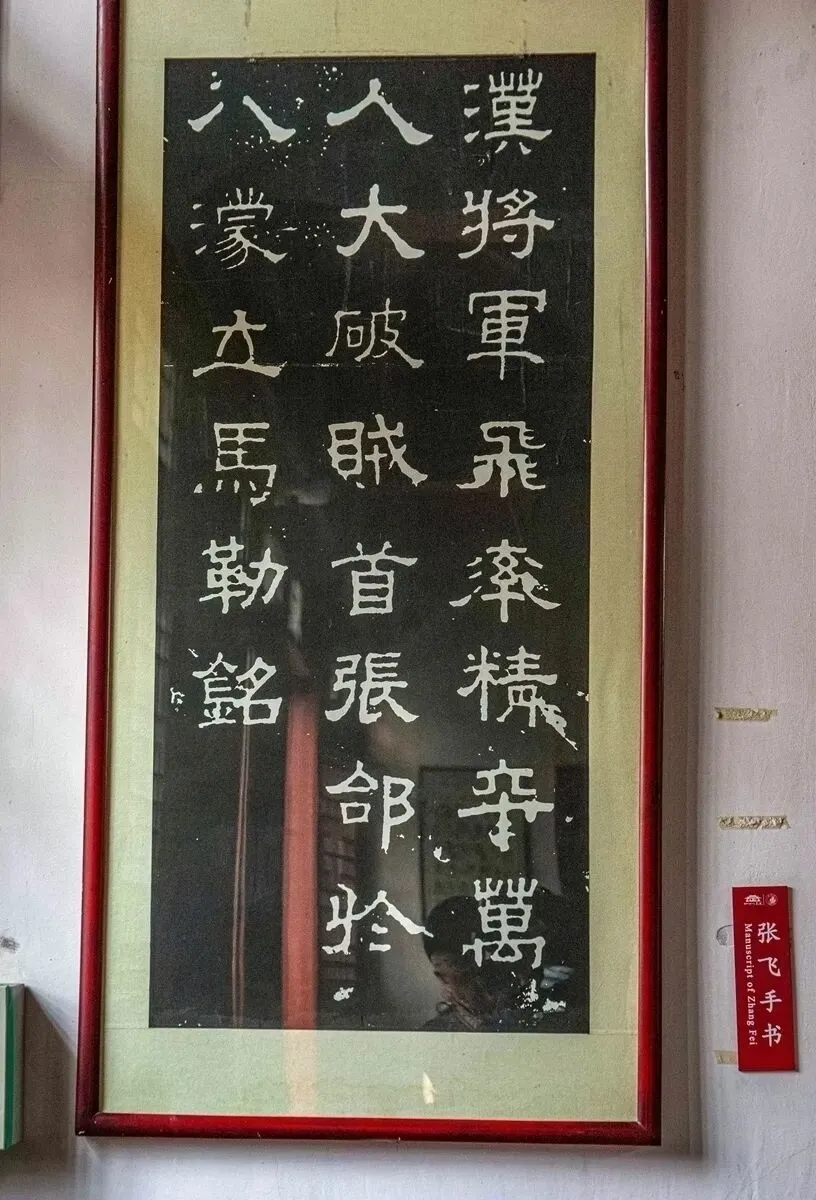 漢將軍飛率精卒萬
人大破賊首張郃於
八濛立馬勒銘
张飞手书
Manuscript of Zhang Fei